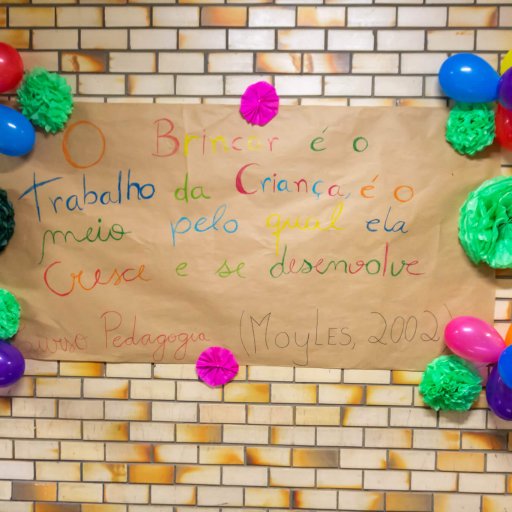 O Brincar é o
Trabalho da Criança, é o
meio pelo qual ela
Cresce e se desenvolve
Curso Pedagogia (MOYLES, 2002)